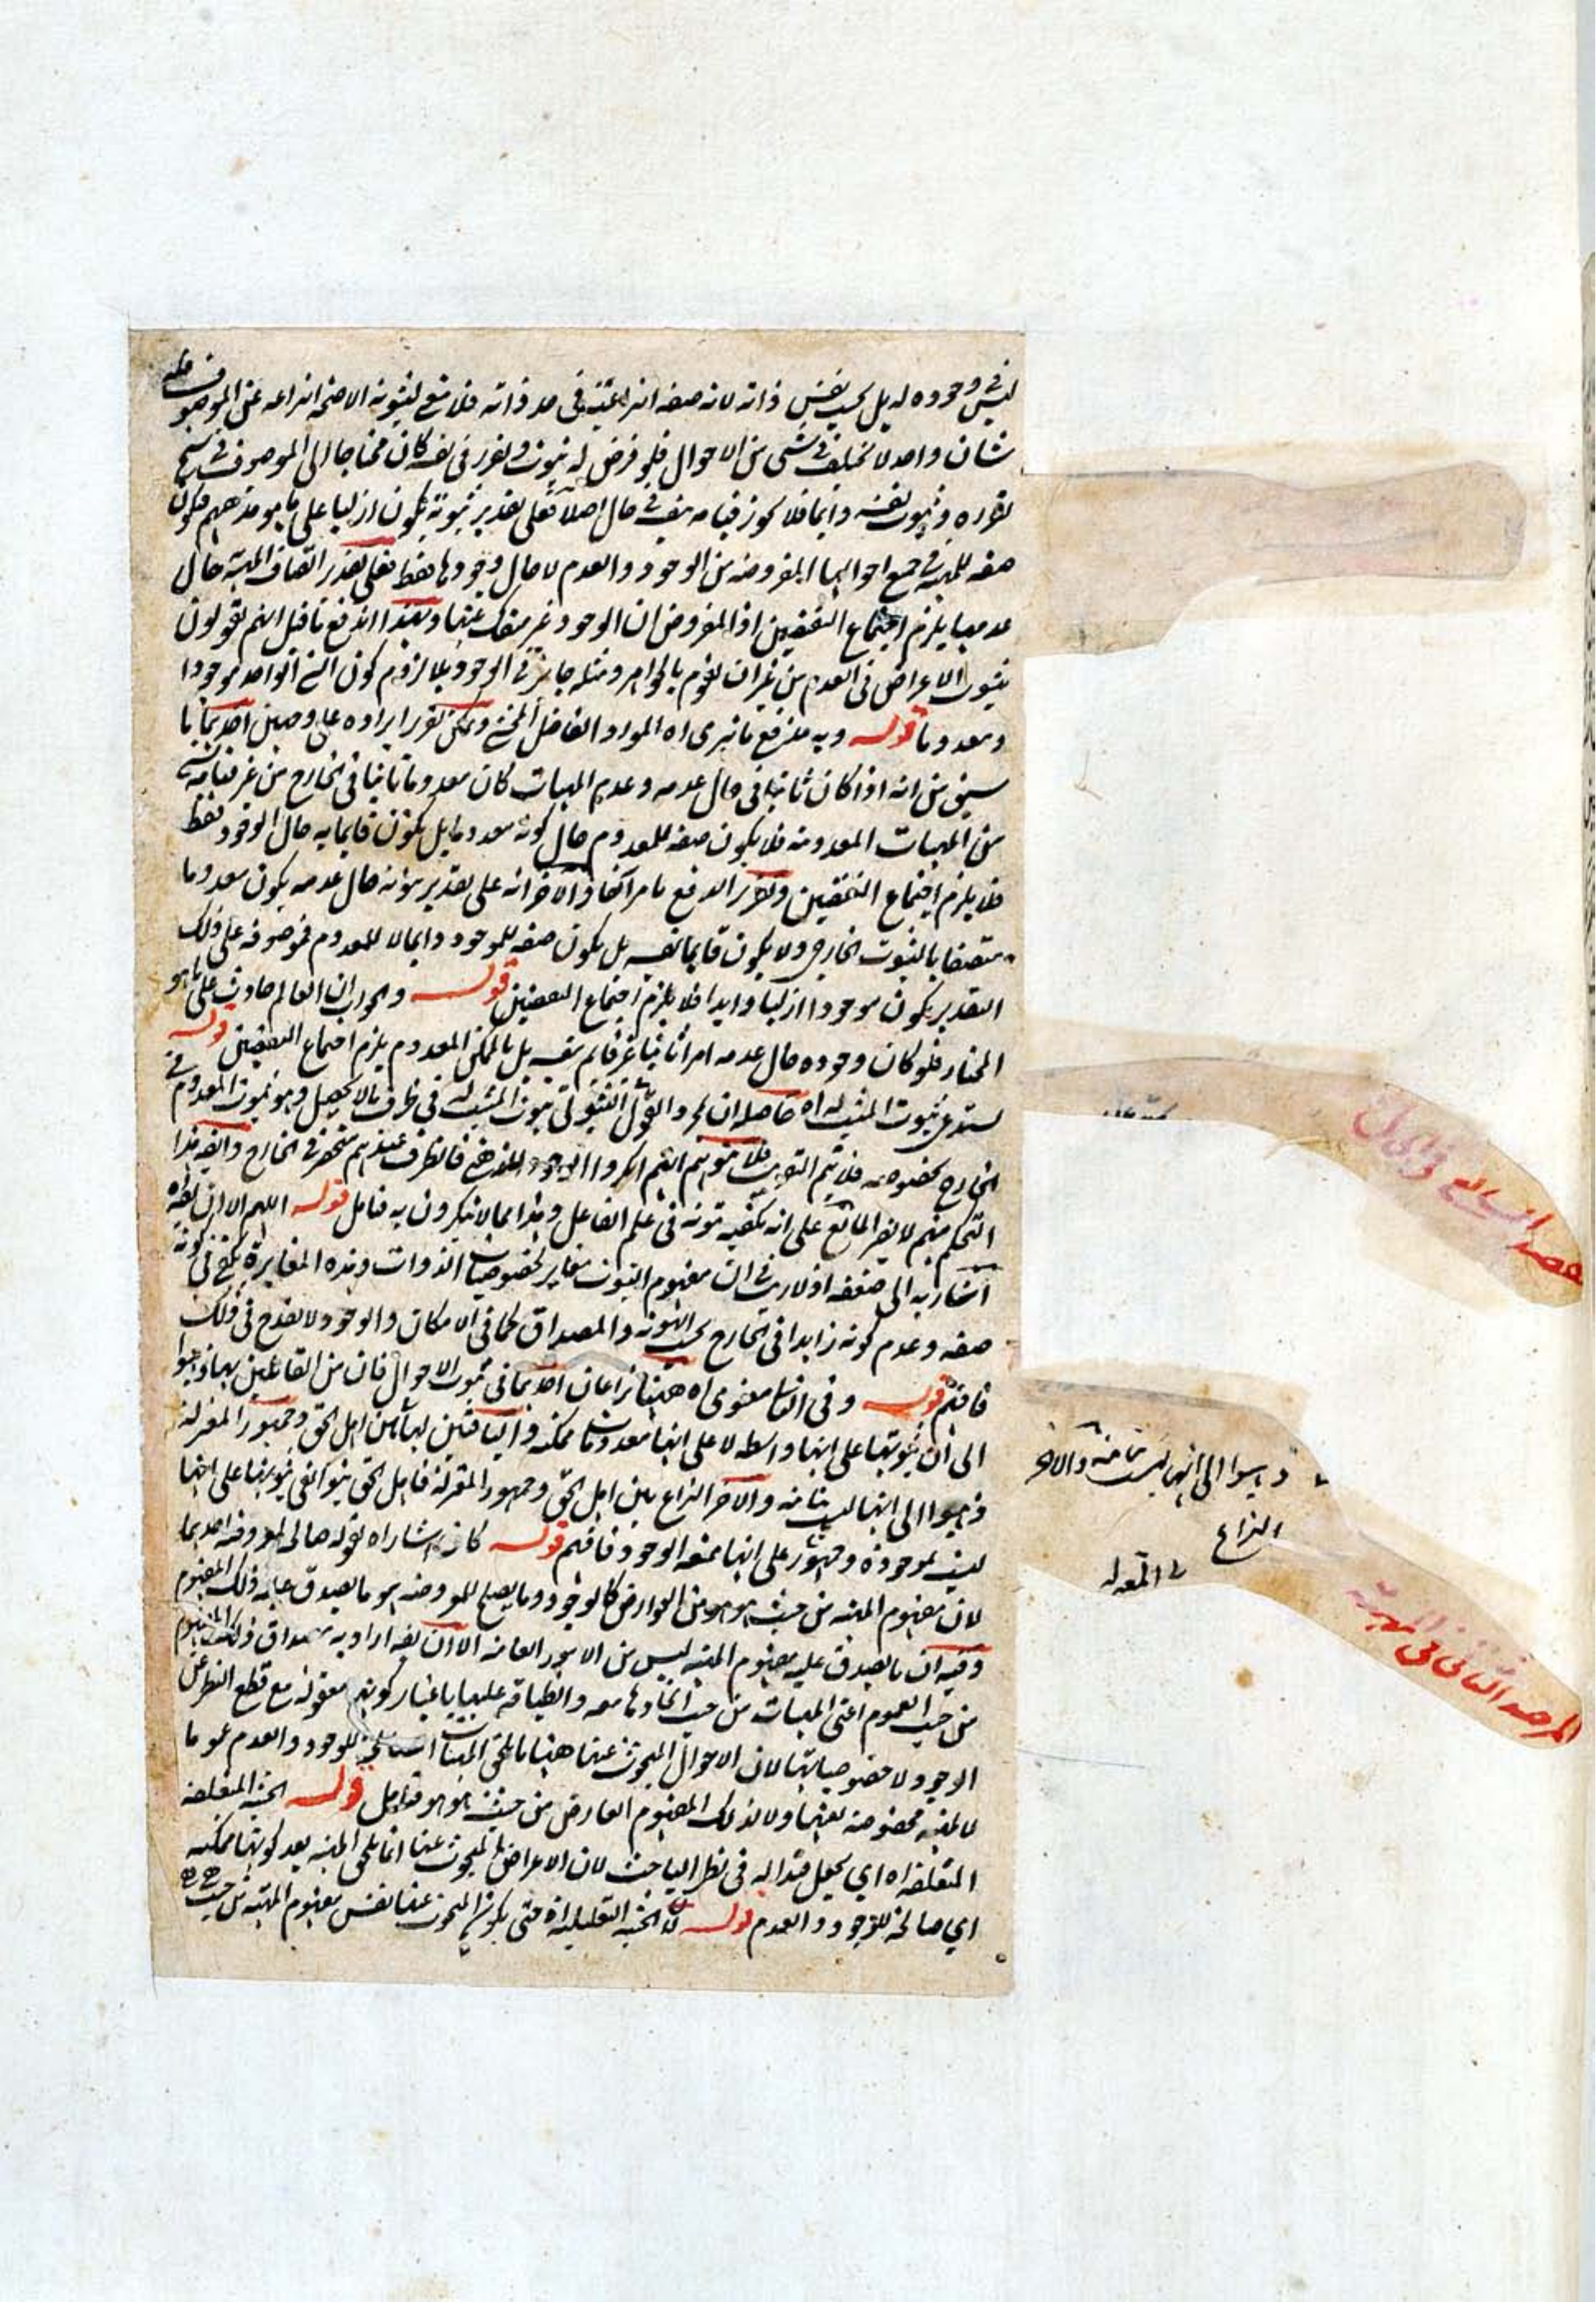 ليس في وجوده له بل بحسب نفس ذاته لانه صفه انتزاعية في حد ذاته فلا معنى لثبوته الا صحة انتزاعه عن الموصوف فله
شان واحد لا يختلف في شى من الاحوال فلو فرض له ثبوت وتقرر في نفسه كان محتاجا الى الموصوف في سنخ
تقرره وثبوت نفسه دائما فلا يجوز قيامه بنفسه في حال اصلا فعلى تقدير ثبوته يكون ازليا على ما هو مذهبهم فيكون
صفه للمهية في جميع احوالها المفروضه من الوجود والعدم لا حال وجودها فقط فعلى تقدير اتصاف المهية حال
عدمها يلزم اجتماع النقيضين اذ المفروض ان الوجود غير منفك عنها وبهذا اندفع ما قيل انهم يقولون
بثبوت الاعراض في العدم من غير ان يقوم بالجواهر ومثله جايز في الوجود بلا لزوم كون الشى الواحد موجودا
ومعدوما قوله وبه يندفع ما نرى اه المورد الفاضل المحشى ويمكن تقرير ايراده على وجهين احديهما ما
سبق من انه اذا كان ثابتا في حال عدمه وعدم المهيات كان معدوما ثابتا في الخارج من غير قيامه بشى
من المهيات المعدومه فلا يكون صفه للمعدوم حال كونه معدوما بل يكون قايما به حال الوجود فقط
فلا يلزم اجتماع النقيضين وتقرير الدفع ما مر آنفا والاخر انه على تقدير ثبوته حال عدمه يكون معدوما
متصفا بالثبوت الخارجي ولا يكون قايما بنفسه بل يكون صفه للموجود دايما لا للمعدوم فموصوفه على ذلك
التقدير يكون موجودا ازليا وابدا فلا يلزم اجتماع النقيضين قوله والجواب ان العالم حادث على ما هو
المختار فلو كان وجوده حال عدمه امرا ثابتا غير قايم بنفسه بل بالممكن المعدوم يلزم اجتماع النقيضين قوله
يستدعى ثبوت المثبت له اه حاصله ان مجرد القول الثبوتى ثبوت المثبت له في ظرف ما لا يحصل وهو ثبوت المعدوم في
الخارج بخصوصه فلا يتم التقريب فلا يتوهم انهم انكروا الوجود الذهنى فالظرف عندهم منحصر في الخارج وايضا هذا
التحكم منهم لا يضر المانع على انه يكفيه ثبوته في علم الفاعل وهذا مما لا ينكرونه فتامل قوله اللهم الا ان يقال اه
اشار به الى ضعفه اذ لا ريب في ان مفهوم الثبوت مغاير لخصوصيات الذوات وهذه المغايرة تكفي في كونه
صفه وعدم كونه زايدا في الخارج بحسب الهوية والمصداق كما في الامكان والوجود لا يقدح في ذلك
فافهم قوله وفي الثابت معنوى اه ههنا نزاعان احديهما في ثبوت الاحوال فان من القائلين بها ذهبوا
الى ان ثبوتها على انها واسطه لا على انها معدومات ممكنه والباقين لها من اهل الحق وجمهور المعتزله
ذهبوا الى انها ليست ثابته والاخر النزاع بين اهل الحق وجمهور المعتزله فاهل الحق بنوا نفى ثبوتها على انها
ليست بموجوده وجمهور على انها ممتنعه الوجود فافهم قوله كانه اشار اه بقوله صالح للمعروضيه احديهما
لان مفهوم المهيه من حيث هو هو من العوارض كالوجود وما يصلح للمعروضيه هو ما يصدق عليه ذلك المفهوم
وفيه ان ما يصدق عليه مفهوم المهيه ليس من الامور العامه الا ان يقال اراد به مصداق ذلك المفهوم
من حيث العموم اعنى المهيات من حيث اتحادها معه وانطباقه عليها باعتبار كونها معقوله مع قطع النظر عن
الوجود لا خصوصياتها لان الاحوال المبحوث عنها ههنا ما يلحق المهيات الصالحة للوجود والعدم عموما
لا لمهية مخصوصه بعينها ولا لذلك المفهوم العارض من حيث هو هو فتامل قوله الحيثية المتعلقه
المتعلقه اه اي يجعل قيدا له في نظر الباحث لان الاعراض المبحوث عنها انما يلحق المهيه بعد كونها ممكنه
اي صالحه للوجود والعدم قوله لا الحيثيه التعليليه اه حتى يكون المبحوث عنها نفس مفهوم المهيه من حيث هى هى
ذهبوا الى انها ليست ثابته والاخر
النزاع
المعتزله
المرصد الثانى فى المهية